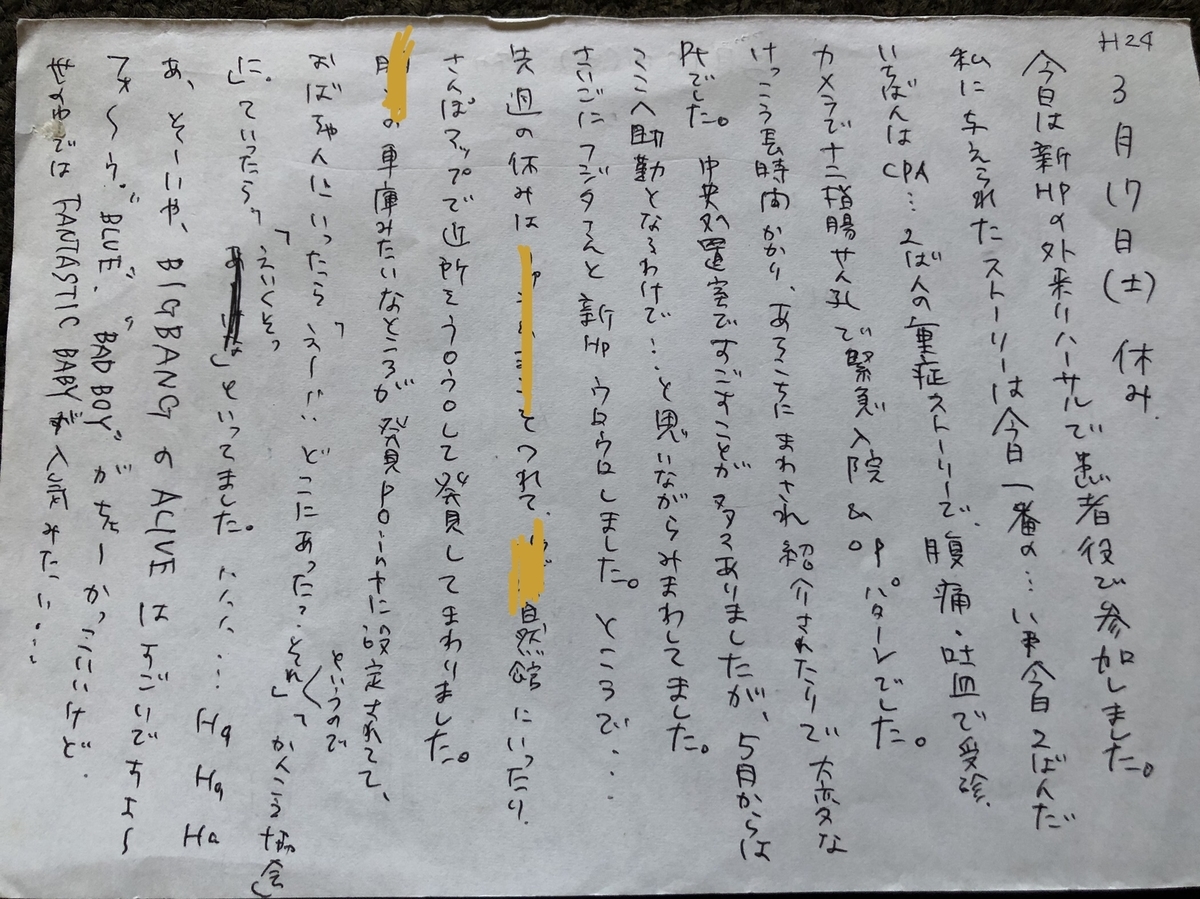 H24
3月17日(土) 休み.
今日は新HPの外来リハーサルで患者役で参加しました。
私に与えられたストーリーは今日一番の…いや今日2ばんだ
いちばんはCPA…2ばんの重症ストーリーで、腹痛・吐血で受診.
カメラで十二指腸せん孔で緊急入院&OPパターンでした。
けっこう長時間かかり、あちこちにまわされ紹介されたりで大変な
Ptでした。中央処置室ですごすことが多々ありましたが、5月からは
ここへ助勤となるわけで…と思いながらみまわしてました。
さいごにフジタさんと新HPウロウロしました。ところで・・
先週の休みは とつれて、 自然館にいったり.
さんぽマップで近所をうろうろして発見してまわりました。
の車庫みたいなところが発見pointに設定されてて、
というので
おばちゃんにいったら「えー!! どこにあった?それ」
って かんこう協会」
に。」ていったら「えいくそっ
」といってました。ハハハ… Ha Ha Ha
あ、そーいや、BIGBANGのALIVEはすごいですよ〜
フォ〜ゥ。"BLUE" "BAD BOY"がちょーかっこいいけど.
せのゆではTANTASTIC BABYが人気みたい…